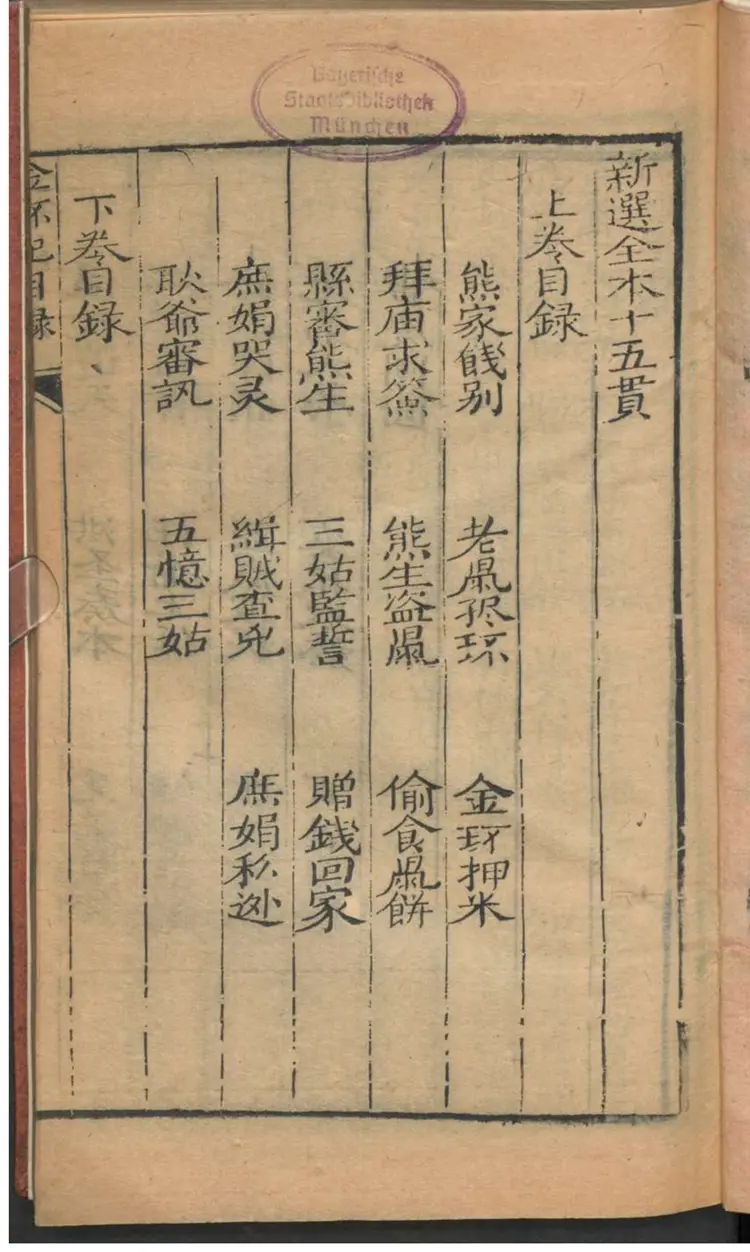 Bayerische
Staatsbibliothek
München
新選全本十五貫
上卷目録
熊家餞別 老鼡环 金环押米
拜庙求簽 熊生盗鼡 偷食鼡餅
縣審熊生 三姑監誓 贈錢回家
庶娟哭灵 緝賊查兇 庶娟私迯
耿爺審訊 五憶三姑
下卷目録
金环记目録